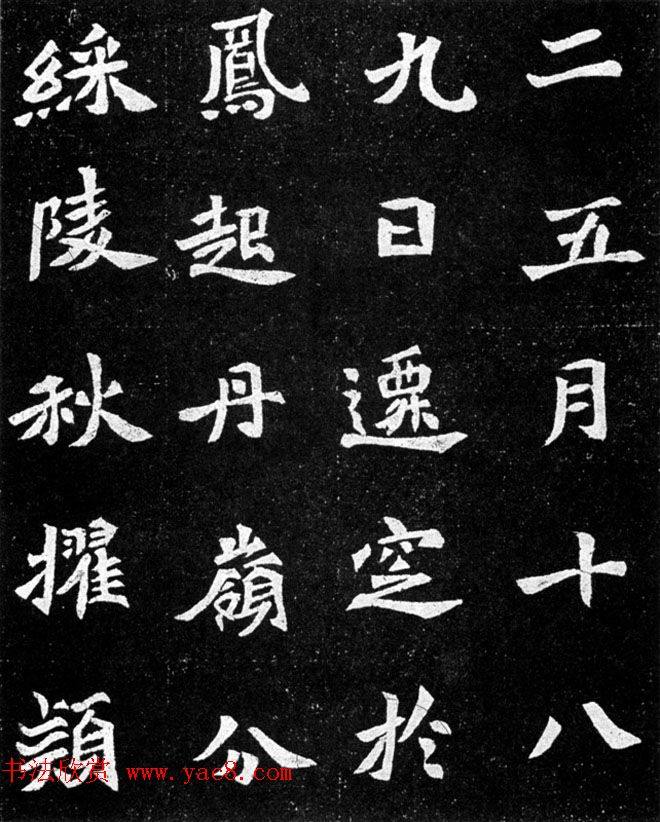 二五月十八
九日遷窆於
鳳起丹嶺分
綵陵秋擢穎
书法欣赏 www.yac8.com